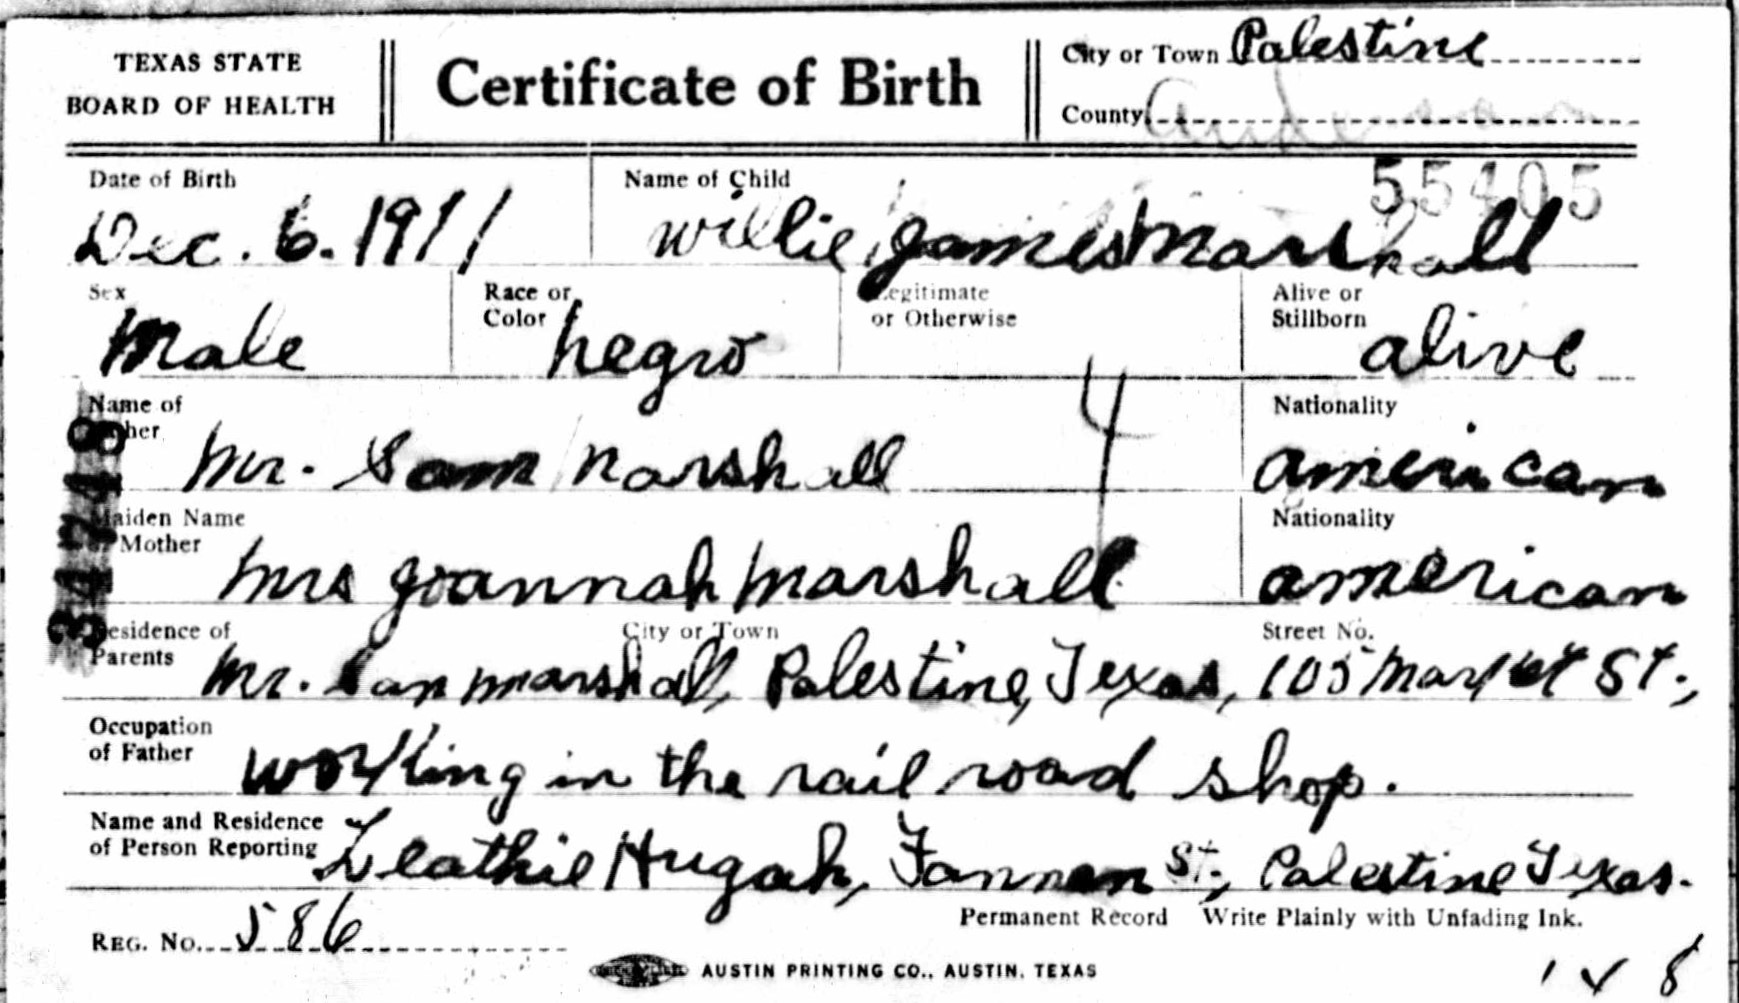 TEXAS STATE
BOARD OF HEALTH
Certificate of Birth
City or Town Palestine
County Anderson
55405
Date of Birth
Dec. 6. 1911
Name of Child
willie james Marshall
Sex
Male
Race or
Color negro
Legitimate
or Otherwise
Alive or
Stillborn alive
4
Name of
Father Mr. Sam Marshall
Nationality
american
34748
Maiden Name
of Mother Mrs joannah Marshall
Nationality
american
Residence of
Parents Mr. Sam marshall,
City or Town
Palestine, Texas,
Street No.
105 Market St.,
Occupation
of Father working in the rail road shop.
Name and Residence
of Person Reporting Leathie Hugah, Fannen St., Palestine Texas.
Permanent Record Write Plainly with Unfading Ink.
REG. NO. 586
AUSTIN PRINTING CO., AUSTIN, TEXAS